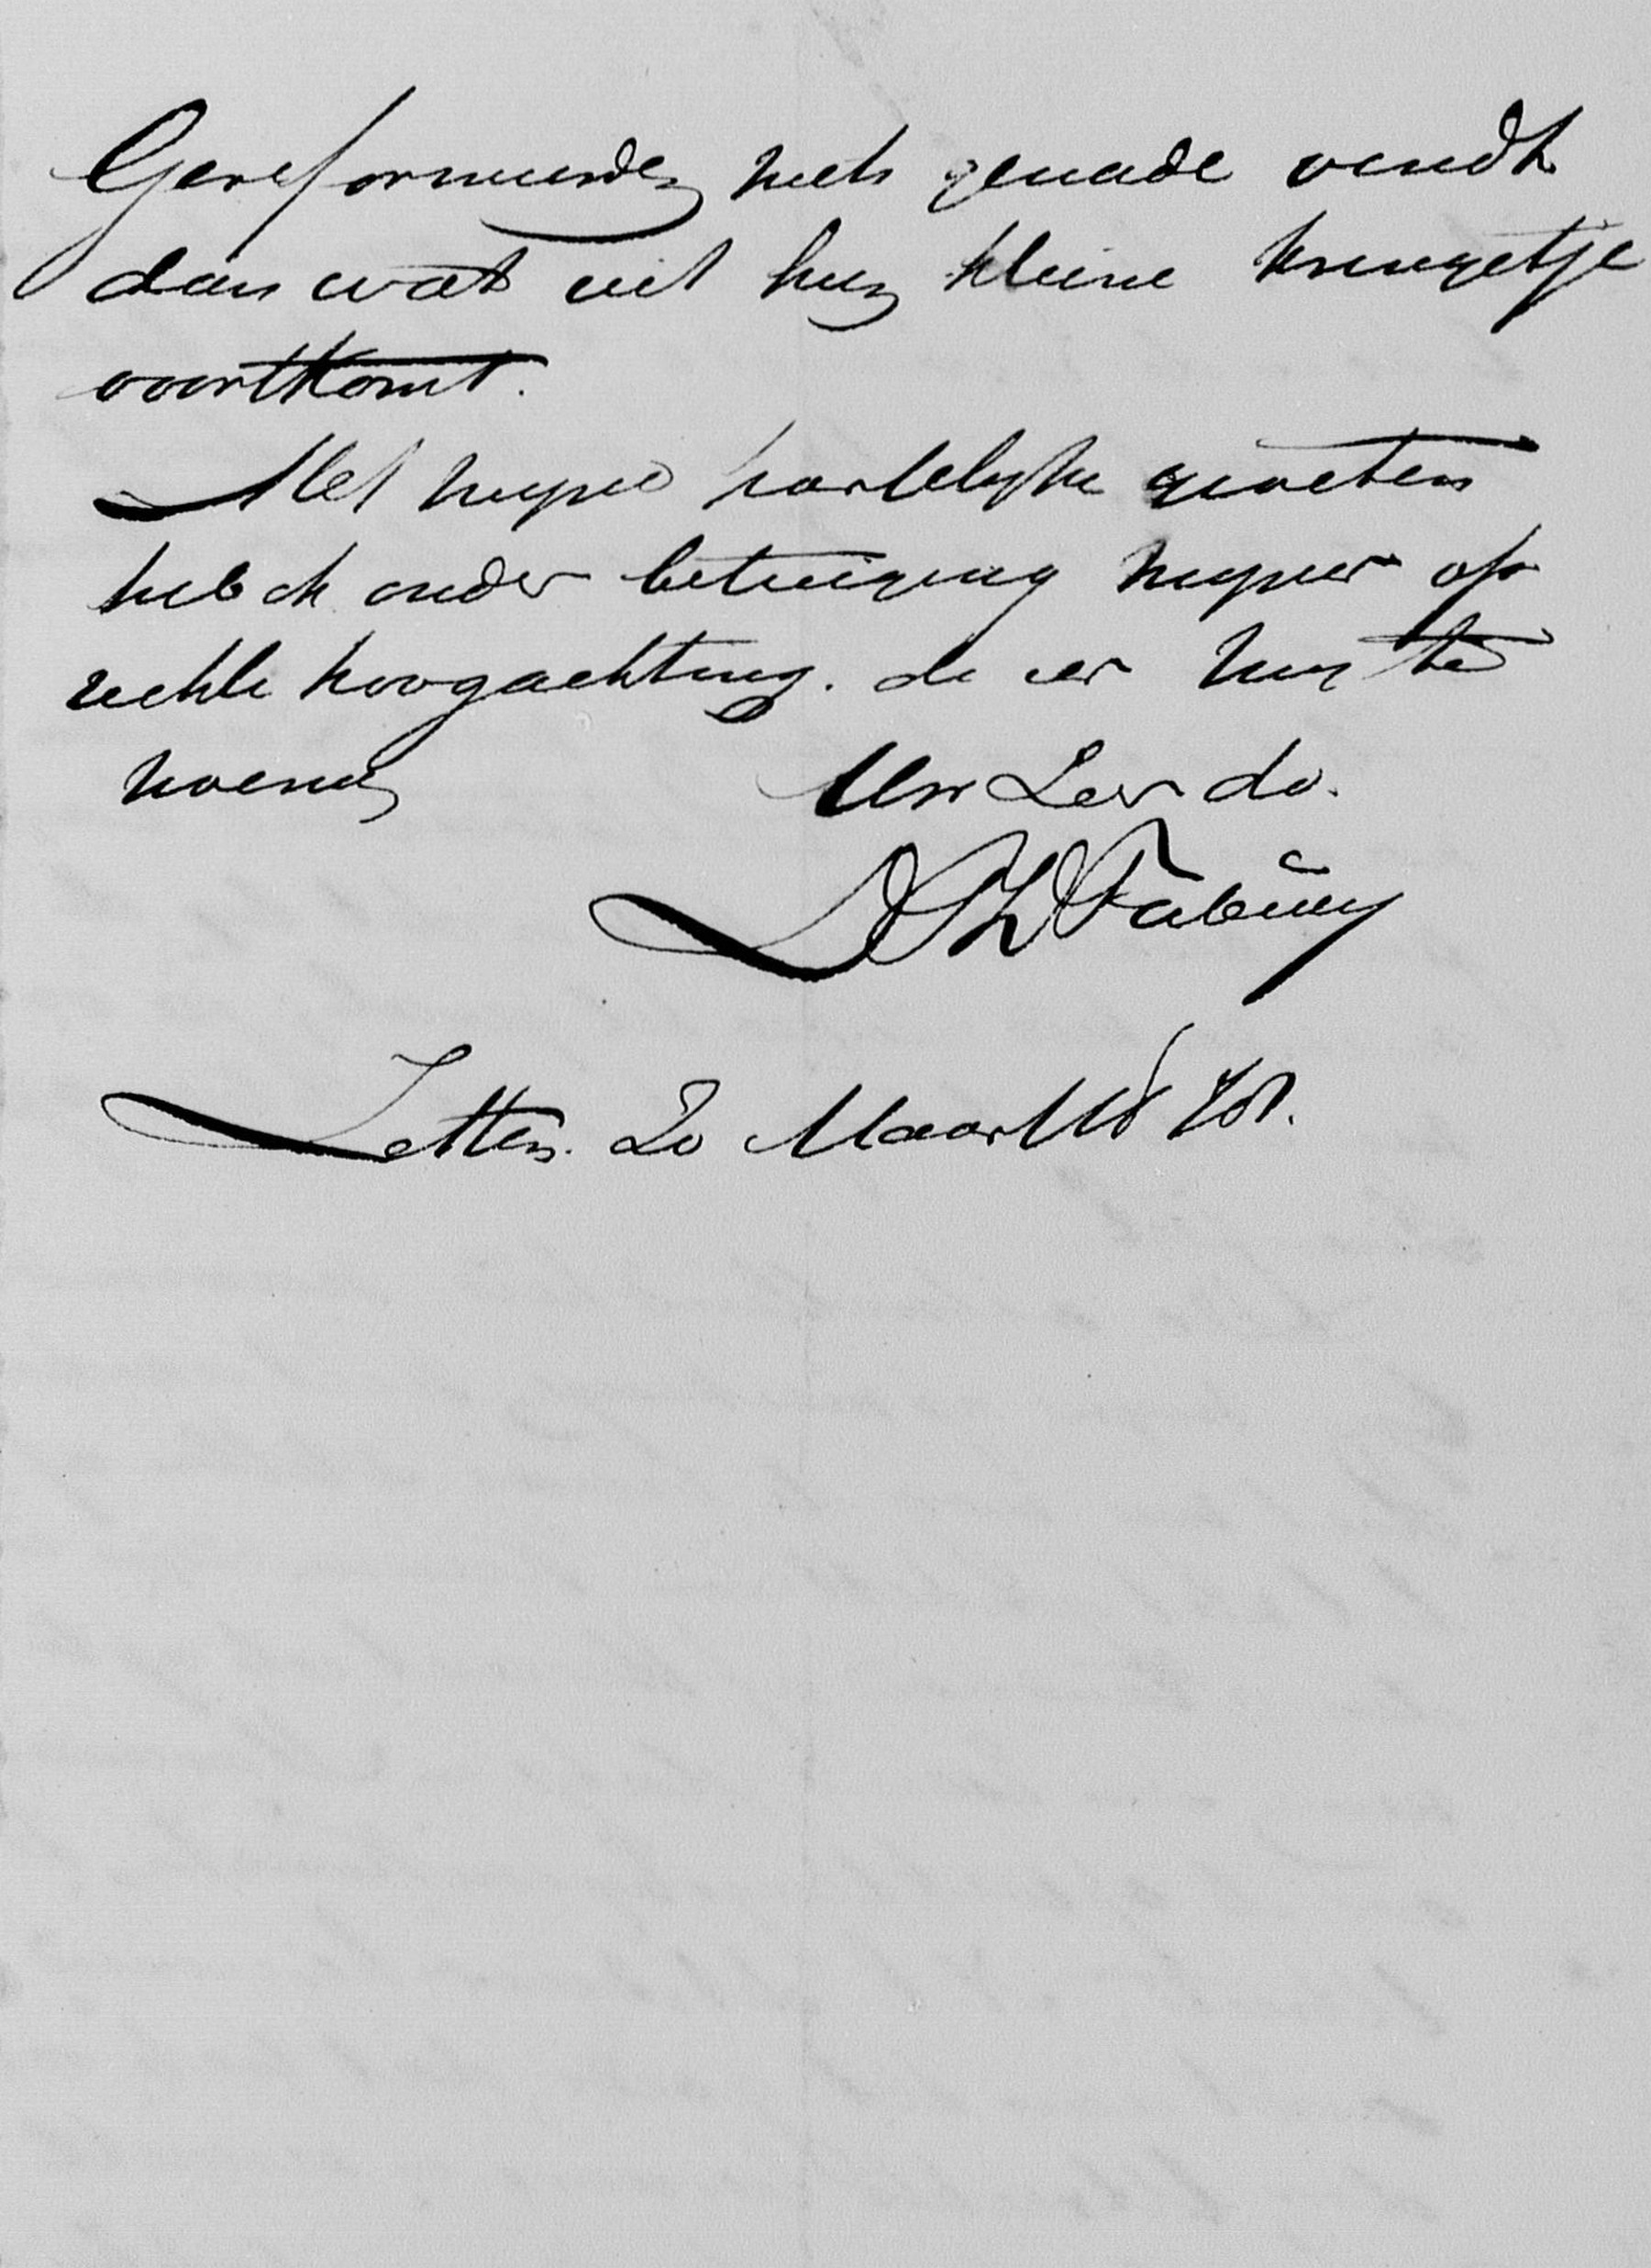 Gereformeerden niets genade vindt
dan wat uit hun kleine kringetje
voortkomt.
Met mijne hartelijke groeten
heb ik onder betuiging mijner op
rechte hoogachting. de eer mij te
noemen
Uw Zeer dw.
Fabius
Zetten. 20 Maart